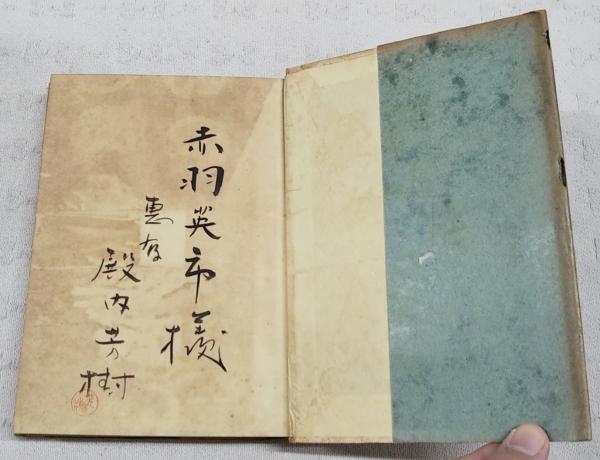 赤羽英市様
惠存
殿内芳樹